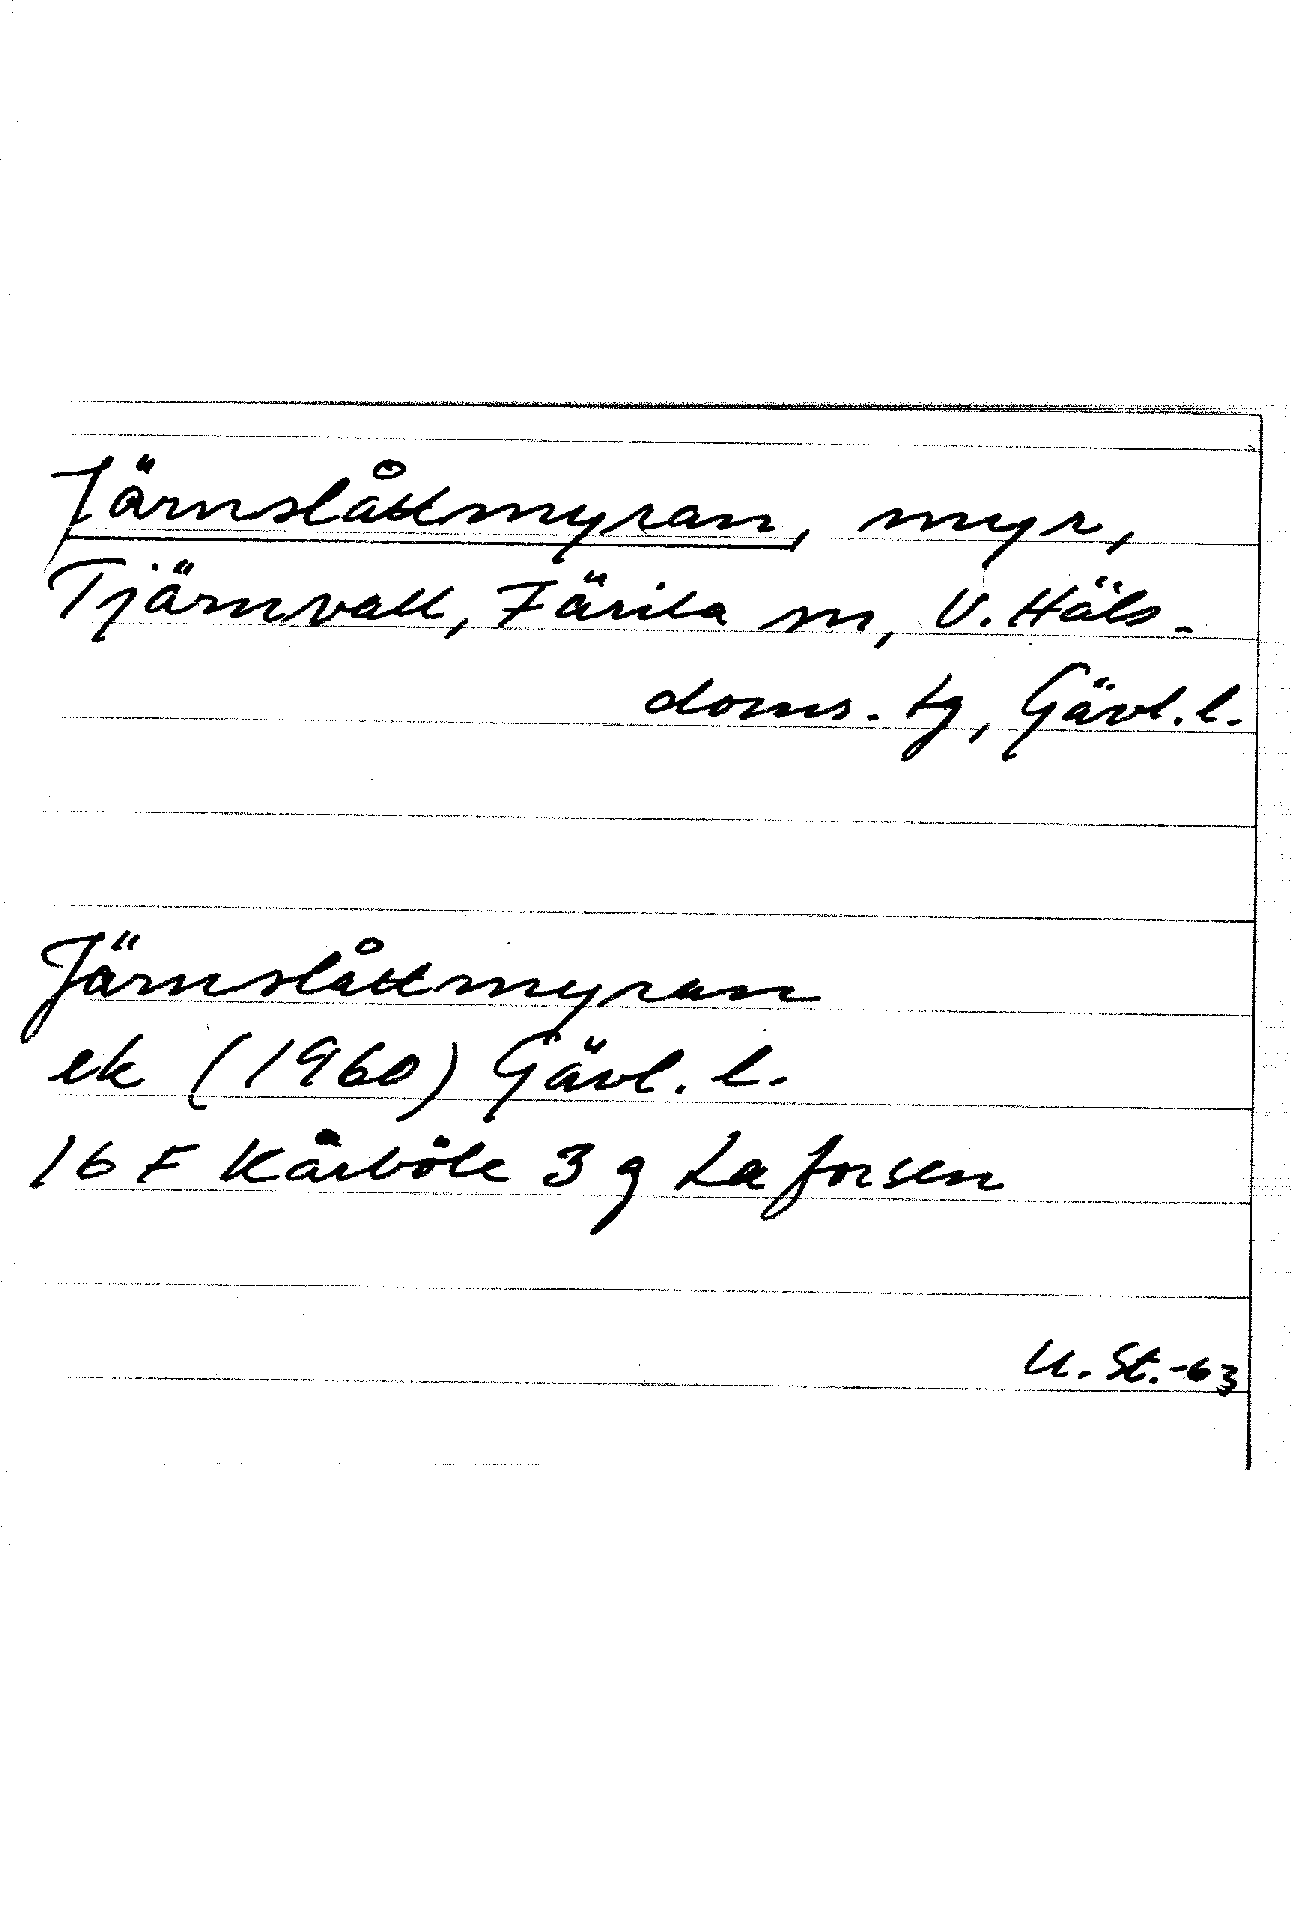 Järnslåttmyran, myr,
Tjärnvall, Färila sn, V. Häls-
doms. tg, Gävl. l.
Järnslåttmyran
ek (1960) Gävl. l.
16 F Kårböle 3 g Laforsen
U. St.-63